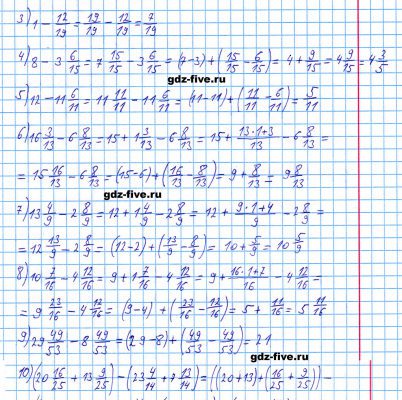 3) 1 - 12/19 = 19/19 - 12/19 = 7/19
4) 8 - 3 6/15 = 7 15/15 - 3 6/15 = (7-3) + (15/15 - 6/15) = 4 + 9/15 = 4 9/15 = 4 3/5
gdz-five.ru
5) 12 - 11 6/11 = 11 11/11 - 11 6/11 = (11-11) + (11/11 - 6/11) = 5/11
6) 16 3/13 - 6 8/13 = 15 + 1 3/13 - 6 8/13 = 15 + 13·1+3/13 - 6 8/13 =
= 15 16/13 - 6 8/13 = (15-6) + (16/13 - 8/13) = 9 + 8/13 = 9 8/13
gdz-five.ru
7) 13 4/9 - 2 8/9 = 12 + 1 4/9 - 2 8/9 = 12 + 9·1+4/9 - 2 8/9 =
= 12 13/9 - 2 8/9 = (12-2) + (13/9 - 8/9) = 10 + 5/9 = 10 5/9
8) 10 7/16 - 4 12/16 = 9 + 1 7/16 - 4 12/16 = 9 + 16·1+7/16 - 4 12/16 =
= 9 23/16 - 4 12/16 = (9-4) + (23/16 - 12/16) = 5 + 11/16 = 5 11/16
9) 29 49/53 - 8 49/53 = (29-8) + (49/53 - 49/53) = 21
gdz-five.ru
10) (20 16/25 + 13 9/25) - (23 4/14 + 9 13/14) = ((20+13) + (16/25 + 9/25)) -
gdz-five.ru